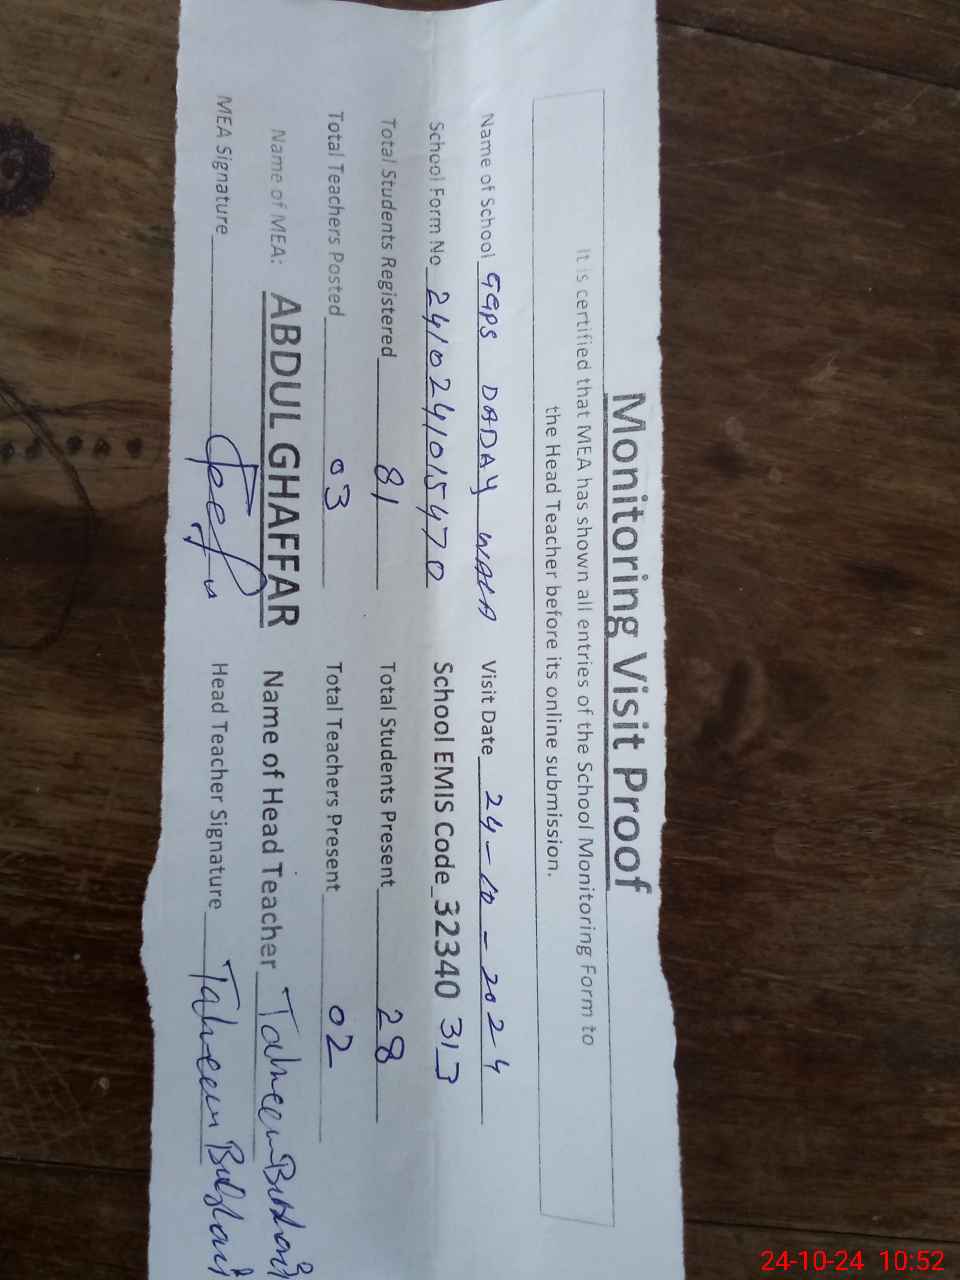 Monitoring Visit Proof
It is certified that MEA has shown all entries of the School Monitoring Form to
the Head Teacher before its online submission.
Name of School GGPS DADAY WALA Visit Date 24-10-2024
School Form No 2410241015470 School EMIS Code 32340 313
Total Students Registered 81 Total Students Present 28
Total Teachers Posted 03 Total Teachers Present 02
Name of MEA: ABDUL GHAFFAR Name of Head Teacher
MEA Signature Head Teacher Signature
24-10-24 10:52